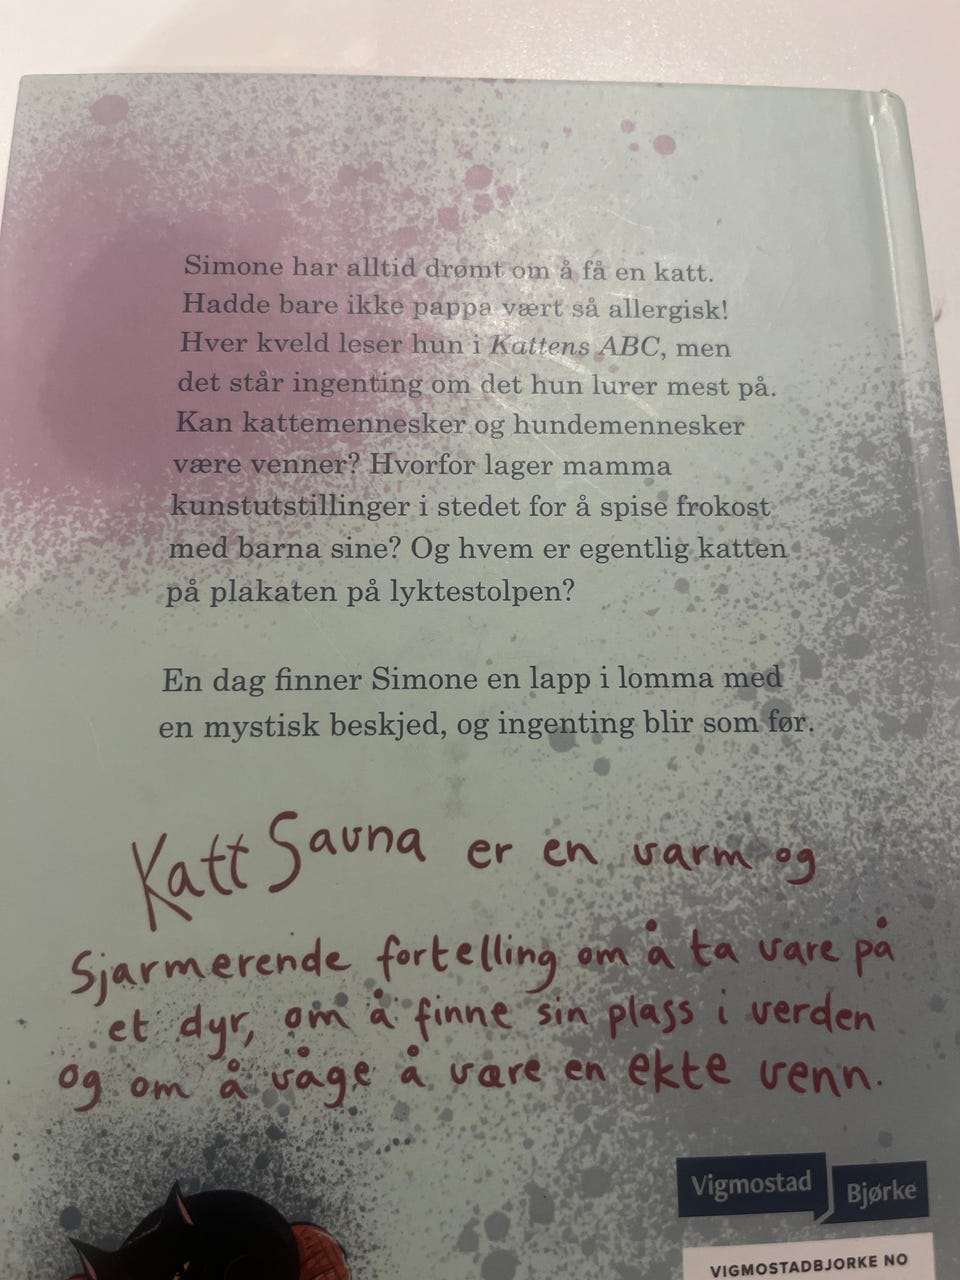 Simone har alltid drømt om å få en katt.
Hadde bare ikke pappa vært så allergisk!
Hver kveld leser hun i Kattens ABC, men
det står ingenting om det hun lurer mest på.
Kan kattemennesker og hundemennesker
være venner? Hvorfor lager mamma
kunstutstillinger i stedet for å spise frokost
med barna sine? Og hvem er egentlig katten
på plakaten på lyktestolpen?
En dag finner Simone en lapp i lomma med
en mystisk beskjed, og ingenting blir som før.
Katt Savna er en varm og
sjarmerende fortelling om å ta vare på
et dyr, om å finne sin plass i verden
og om å våge å være en ekte venn.
Vigmostad
Bjørke
VIGMOSTADBJORKE NO